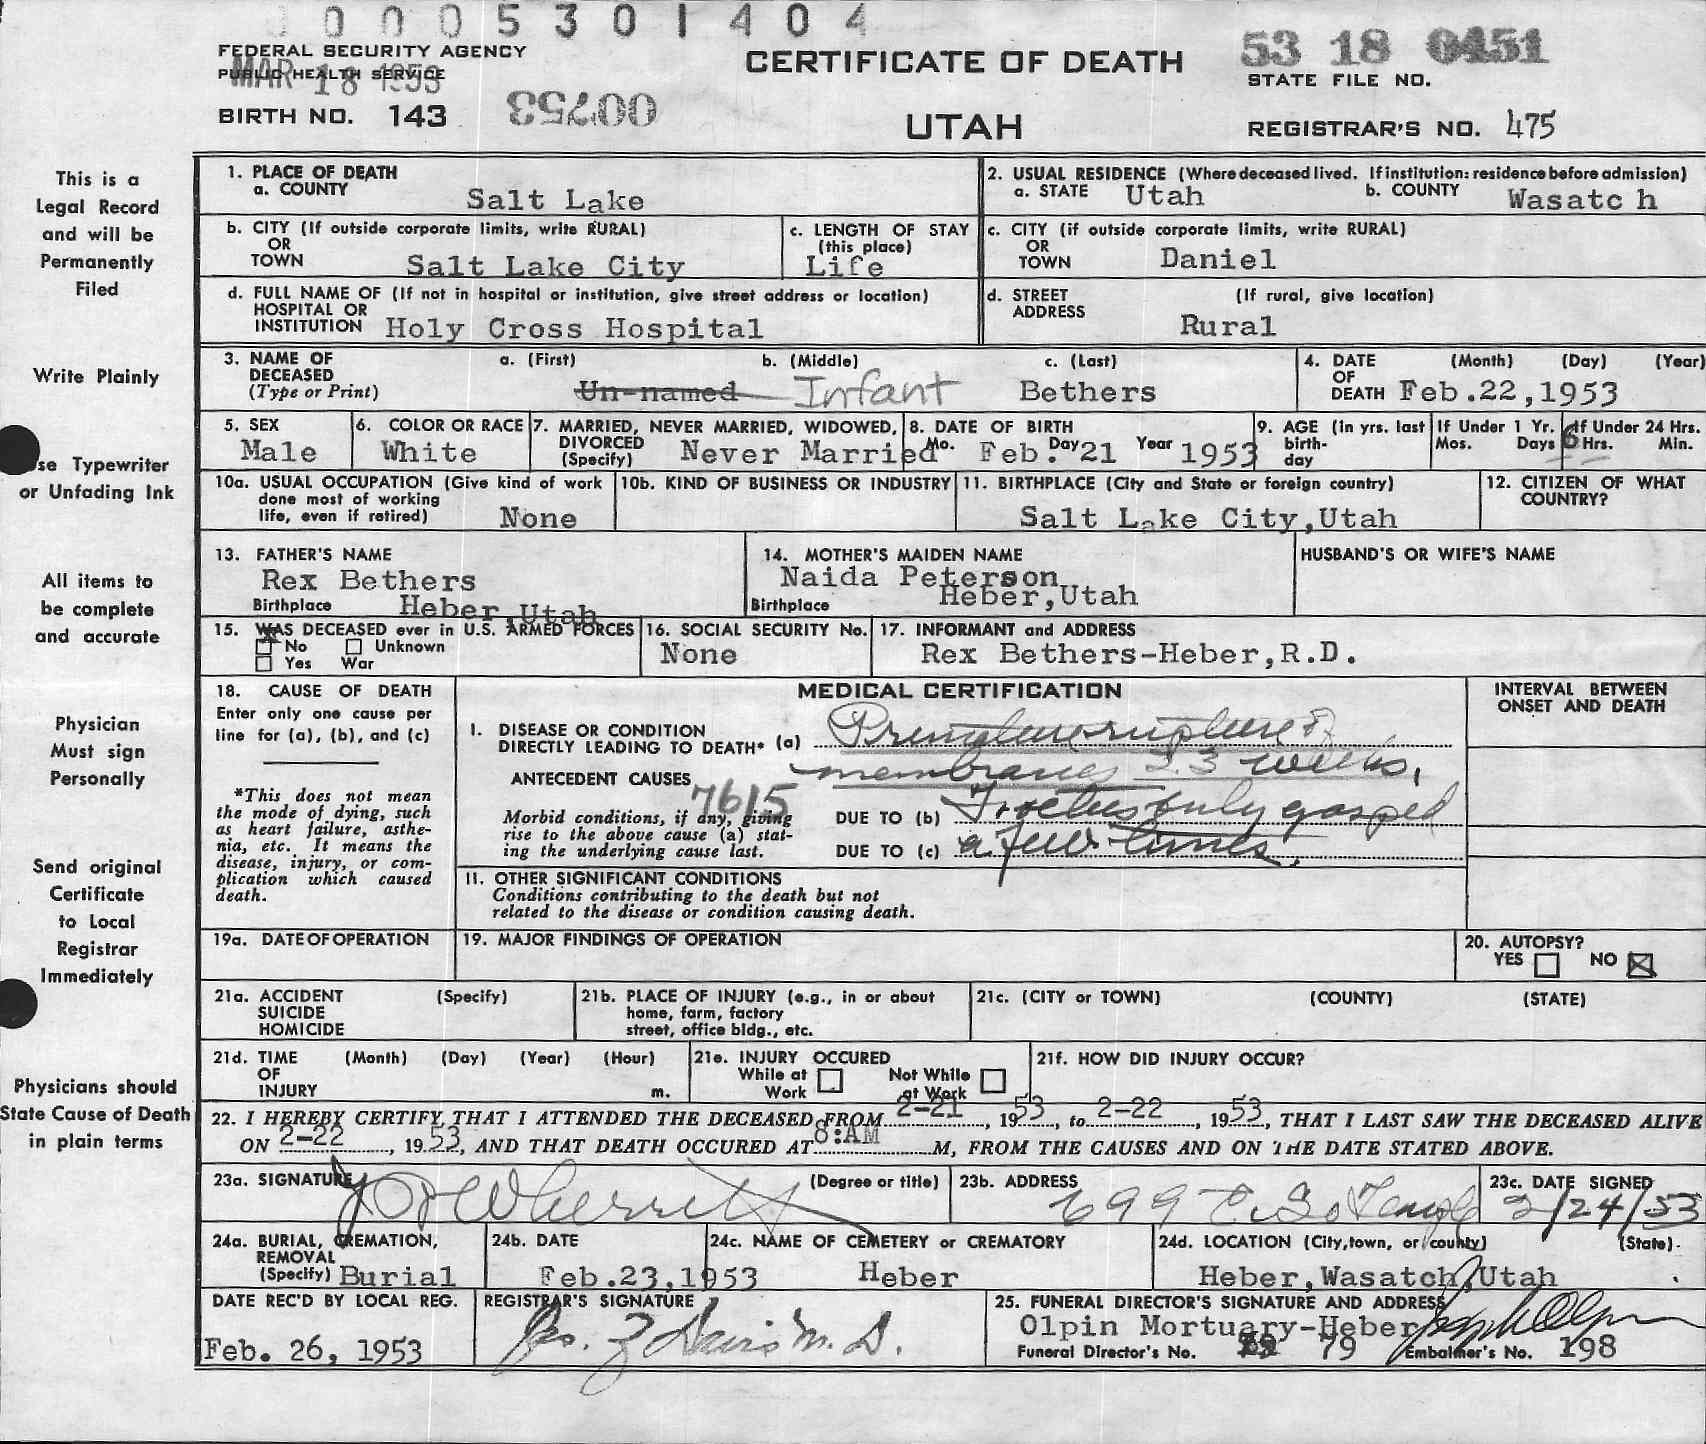 0005301404
FEDERAL SECURITY AGENCY
PUBLIC HEALTH SERVICE
MAR 18 1953
BIRTH NO. 143
00753
CERTIFICATE OF DEATH
UTAH
53 18 0451
STATE FILE NO.
REGISTRAR'S NO. 475
This is a
Legal Record
and will be
Permanently
Filed
Write Plainly
se Typewriter
or Unfading Ink
All items to
be complete
and accurate
Physician
Must sign
Personally
Send original
Certificate
to Local
Registrar
Immediately
Physicians should
State Cause of Death
in plain terms
1. PLACE OF DEATH
a. COUNTY Salt Lake
2. USUAL RESIDENCE (Where deceased lived. If institution: residence before admission)
a. STATE Utah b. COUNTY Wasatc h
b. CITY (If outside corporate limits, write RURAL)
OR
TOWN Salt Lake City
c. LENGTH OF STAY
(this place)
Life
c. CITY (if outside corporate limits, write RURAL)
OR
TOWN Daniel
d. FULL NAME OF (If not in hospital or institution, give street address or location)
HOSPITAL OR
INSTITUTION Holy Cross Hospital
d. STREET (If rural, give location)
ADDRESS
Rural
3. NAME OF a. (First) b. (Middle) c. (Last)
DECEASED
(Type or Print) Un-named Infant Bethers
4. DATE (Month) (Day) (Year)
OF
DEATH Feb.22,1953
5. SEX
Male
6. COLOR OR RACE
White
7. MARRIED, NEVER MARRIED, WIDOWED,
DIVORCED
(Specify) Never Married
8. DATE OF BIRTH
Mo. Feb. Day 21 Year 1953
9. AGE (In yrs. last
birth-
day
If Under 1 Yr.
Mos. Days
If Under 24 Hrs.
6 Hrs. Min.
10a. USUAL OCCUPATION (Give kind of work
done most of working
life, even if retired) None
10b. KIND OF BUSINESS OR INDUSTRY
11. BIRTHPLACE (City and State or foreign country)
Salt Lake City,Utah
12. CITIZEN OF WHAT
COUNTRY?
13. FATHER'S NAME
Rex Bethers
Birthplace Heber,Utah
14. MOTHER'S MAIDEN NAME
Naida Peterson
Birthplace Heber,Utah
HUSBAND'S OR WIFE'S NAME
15. WAS DECEASED ever in U.S. ARMED FORCES
x No Unknown
Yes War
16. SOCIAL SECURITY No.
None
17. INFORMANT and ADDRESS
Rex Bethers-Heber,R.D.
18. CAUSE OF DEATH
Enter only one cause per
line for (a), (b), and (c)
*This does not mean
the mode of dying, such
as heart failure, asthe-
nia, etc. It means the
disease, injury, or com-
plication which caused
death.
MEDICAL CERTIFICATION
INTERVAL BETWEEN
ONSET AND DEATH
I. DISEASE OR CONDITION
DIRECTLY LEADING TO DEATH* (a) Premature rupture of
membranes 23 weeks,
ANTECEDENT CAUSES
7615
Morbid conditions, if any, giving
rise to the above cause (a) stat-
ing the underlying cause last.
DUE TO (b) Foetus only gasped
DUE TO (c) a few times.
11. OTHER SIGNIFICANT CONDITIONS
Conditions contributing to the death but not
related to the disease or condition causing death.
19a. DATE OF OPERATION
19. MAJOR FINDINGS OF OPERATION
20. AUTOPSY?
YES NO X
21a. ACCIDENT (Specify)
SUICIDE
HOMICIDE
21b. PLACE OF INJURY (e.g., in or about
home, farm, factory
street, office bldg., etc.
21c. (CITY or TOWN) (COUNTY) (STATE)
21d. TIME (Month) (Day) (Year) (Hour)
OF
INJURY m.
21e. INJURY OCCURED
While at Not While
Work at Work
21f. HOW DID INJURY OCCUR?
22. I HEREBY CERTIFY THAT I ATTENDED THE DECEASED FROM 2-21, 1953, to 2-22, 1953, THAT I LAST SAW THE DECEASED ALIVE
ON 2-22, 1953, AND THAT DEATH OCCURED AT 8:AM M, FROM THE CAUSES AND ON THE DATE STATED ABOVE.
23a. SIGNATURE (Degree or title)
23b. ADDRESS
699 E. So. Temple
23c. DATE SIGNED
2/24/53
24a. BURIAL, CREMATION,
REMOVAL
(Specify) Burial
24b. DATE
Feb.23,1953
24c. NAME OF CEMETERY or CREMATORY
Heber
24d. LOCATION (City,town, or county) (State)
Heber,Wasatch,Utah
DATE REC'D BY LOCAL REG.
Feb. 26, 1953
REGISTRAR'S SIGNATURE
Jas. Z Davis M.D.
25. FUNERAL DIRECTOR'S SIGNATURE AND ADDRESS
Olpin Mortuary-Heber
Funeral Director's No. 79 Embalmer's No. 198